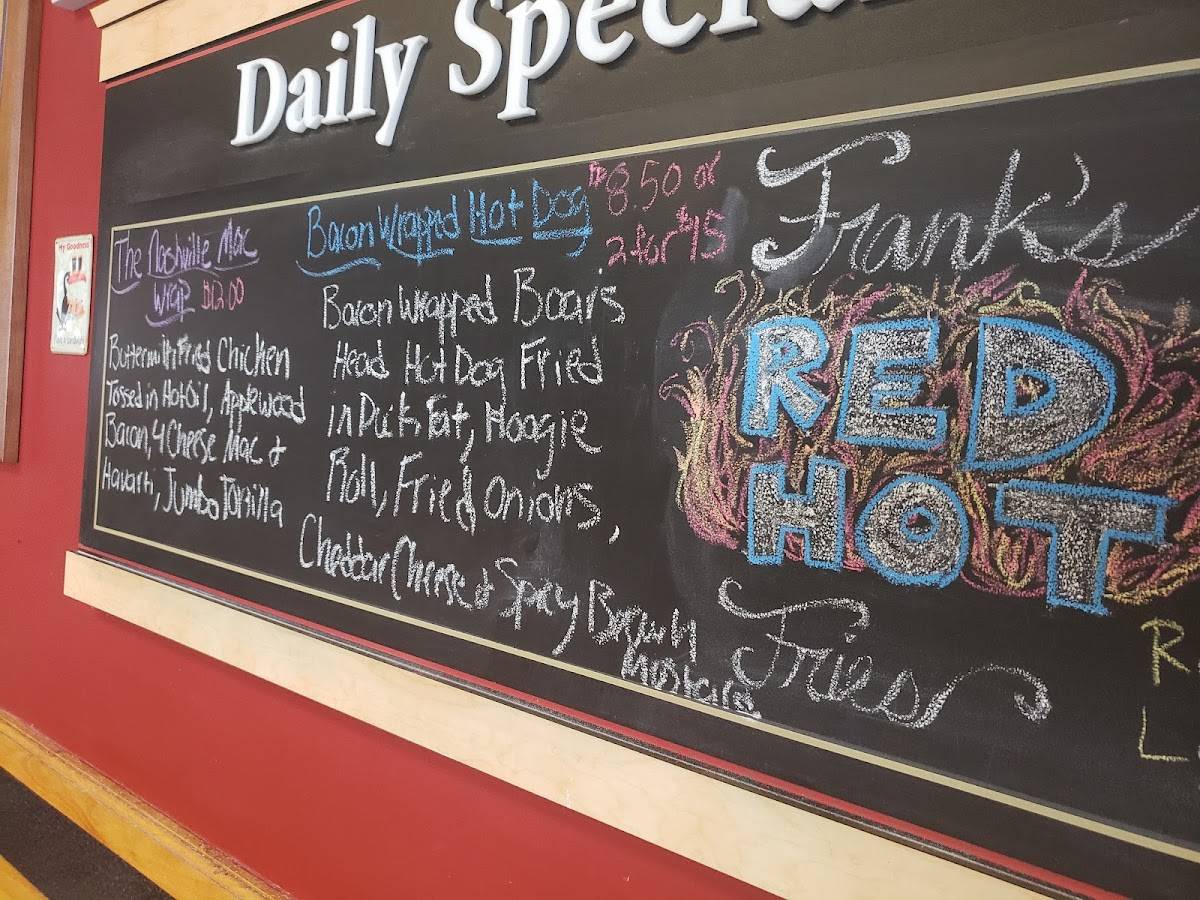 Daily Specia
The Nashville Mac
Wrap $12.00
Buttermilk Fried Chicken
Tossed in Hot Oil, Applewood
Bacon, 4 Cheese Mac &
Havarti, Jumbo Tortilla
Bacon Wrapped Hot Dog
$8.50 or
2 for $15
Bacon Wrapped Boars
Head Hot Dog Fried
in Duck Fat, Hoogie
Roll, Fried Onions,
Cheddar Cheese & Spicy Brown
Mustard
Frank's
RED
HOT
Fries
R
L
My Goodness